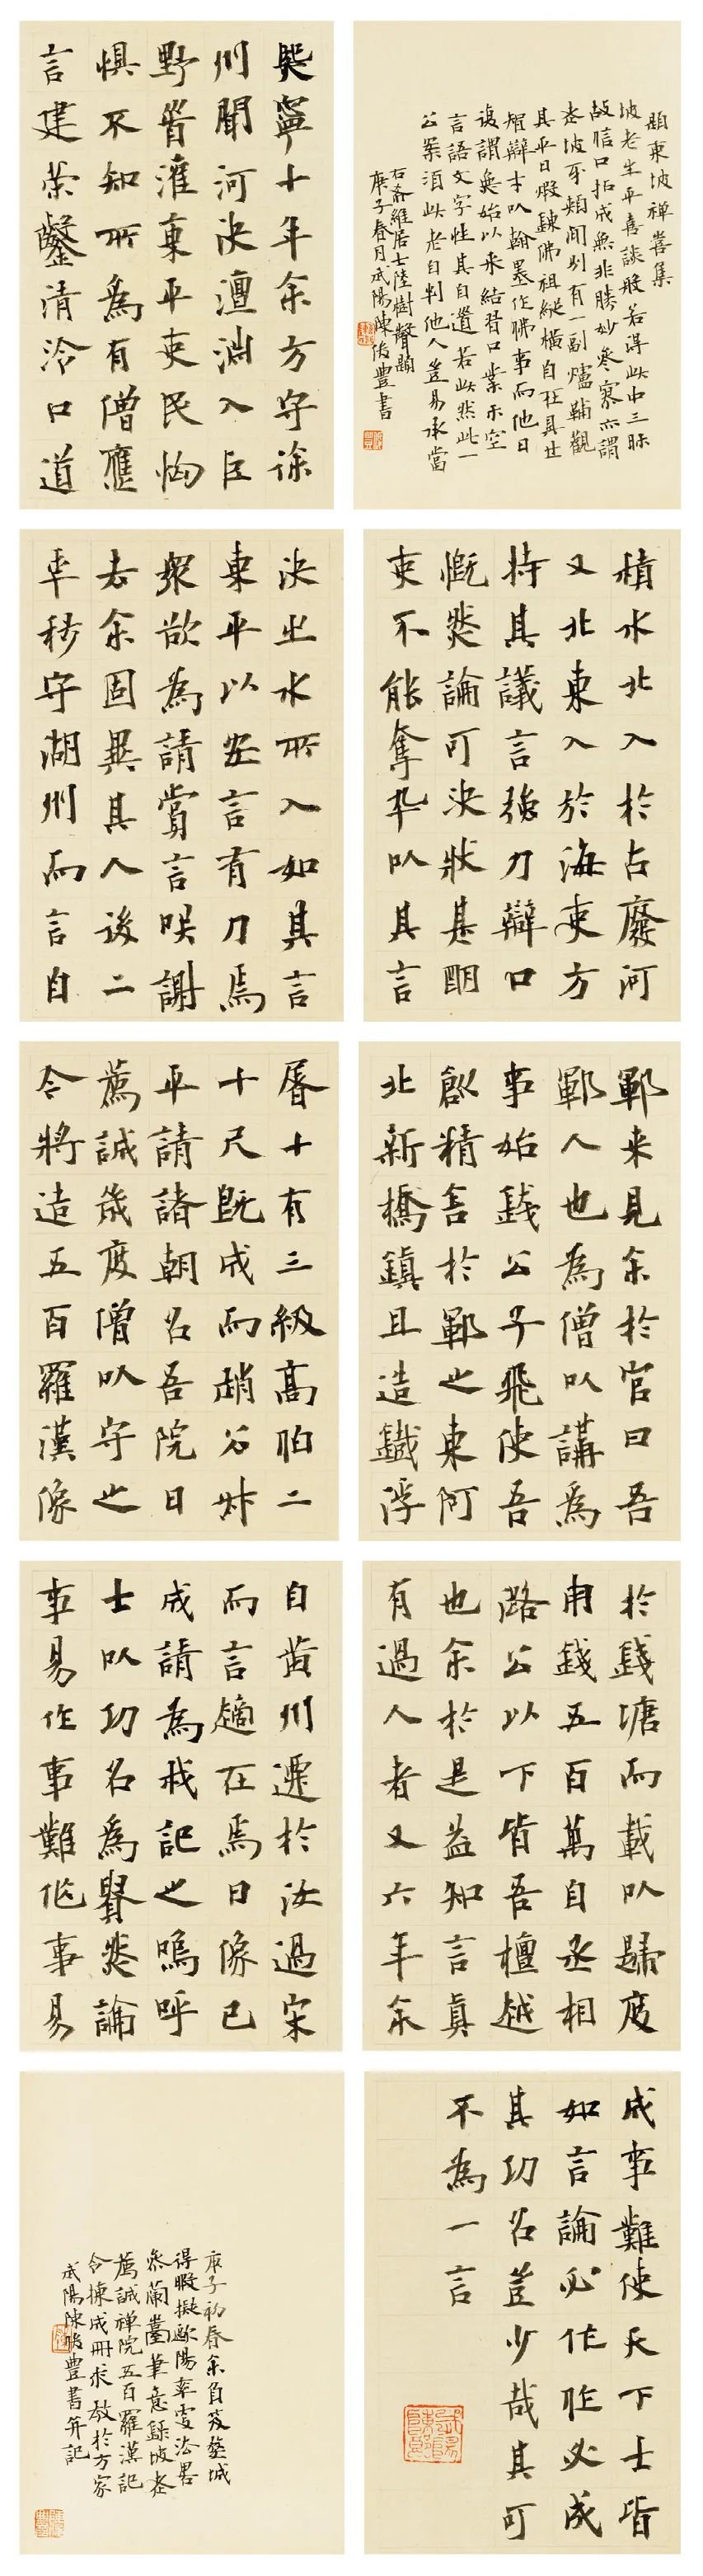 題東坡禪喜集
坡老生平喜談般若得此中三昧
故信口拈成無非勝妙參寥亦謂
老坡牙頰間別有一副爐鞴觀
其平日煅鍊佛祖縱橫自在具世
智辯才以翰墨作佛事而他日
復謂無始以来結習口業示空
言語文字性其自遣若此然此一
公案須此老自判他人豈易承當
右齋維居士陸樹聲題
庚子春月武陽陳俊豐書
熙寧十年余方守徐
州聞河決澶淵入巨
野首灌東平吏民恟
懼不知所為有僧應
言建策鑿清泠口道
積水北入於古廢河
又北東入於海吏方
持其議言強力辯口
慨然論可決狀甚明
吏不能奪卒以其言
決之水所入如其言
東平以安言有力焉
衆欲為請賞言笑謝
去余固異其人後二
年移守湖州而言自
鄆来見余於宫曰吾
鄆人也為僧以講為
事始錢公子飛使吾
創精舍於鄆之東阿
北新橋鎮且造鐵浮
屠十有三級高百二
十尺既成而趙公叔
平請諸朝名吾院曰
薦誠歲度僧以守之
今將造五百羅漢像
於錢塘而載以歸度
用錢五百萬自丞相
潞公以下皆吾檀越
也余於是益知言真
有過人者又六年余
自黃州遷於汝過宋
而言適在焉曰像已
成請為我記之嗚呼
士以功名為貴然論
事易作事難作事易
成事難使天下士皆
如言論必作作必成
其功名豈少哉其可
不為一言
庚子初春余自笈藝城
得暇擬歐陽率更法略
參蘭臺筆意録坡老
薦誠禪院五百羅漢記
合揀成冊求教於方家
武陽陳俊豐書并記